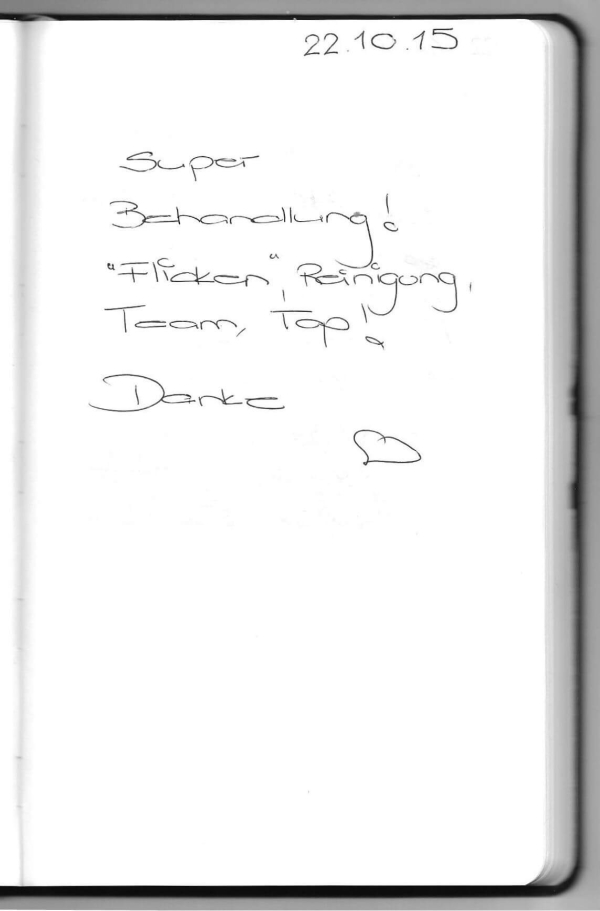 22.10.15
Super
Behandlung!
"Flicken", Reinigung,
Team, Top!
Danke